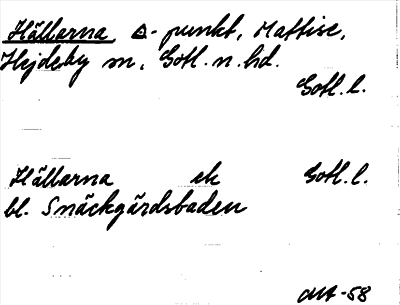 Hällarna △-punkt, Mattise,
Hejdeby sn, Gotl. n. hd.
Gotl. l.
Hällarna ek Gotl. l.
bl. Snäckgärdsbaden
-58